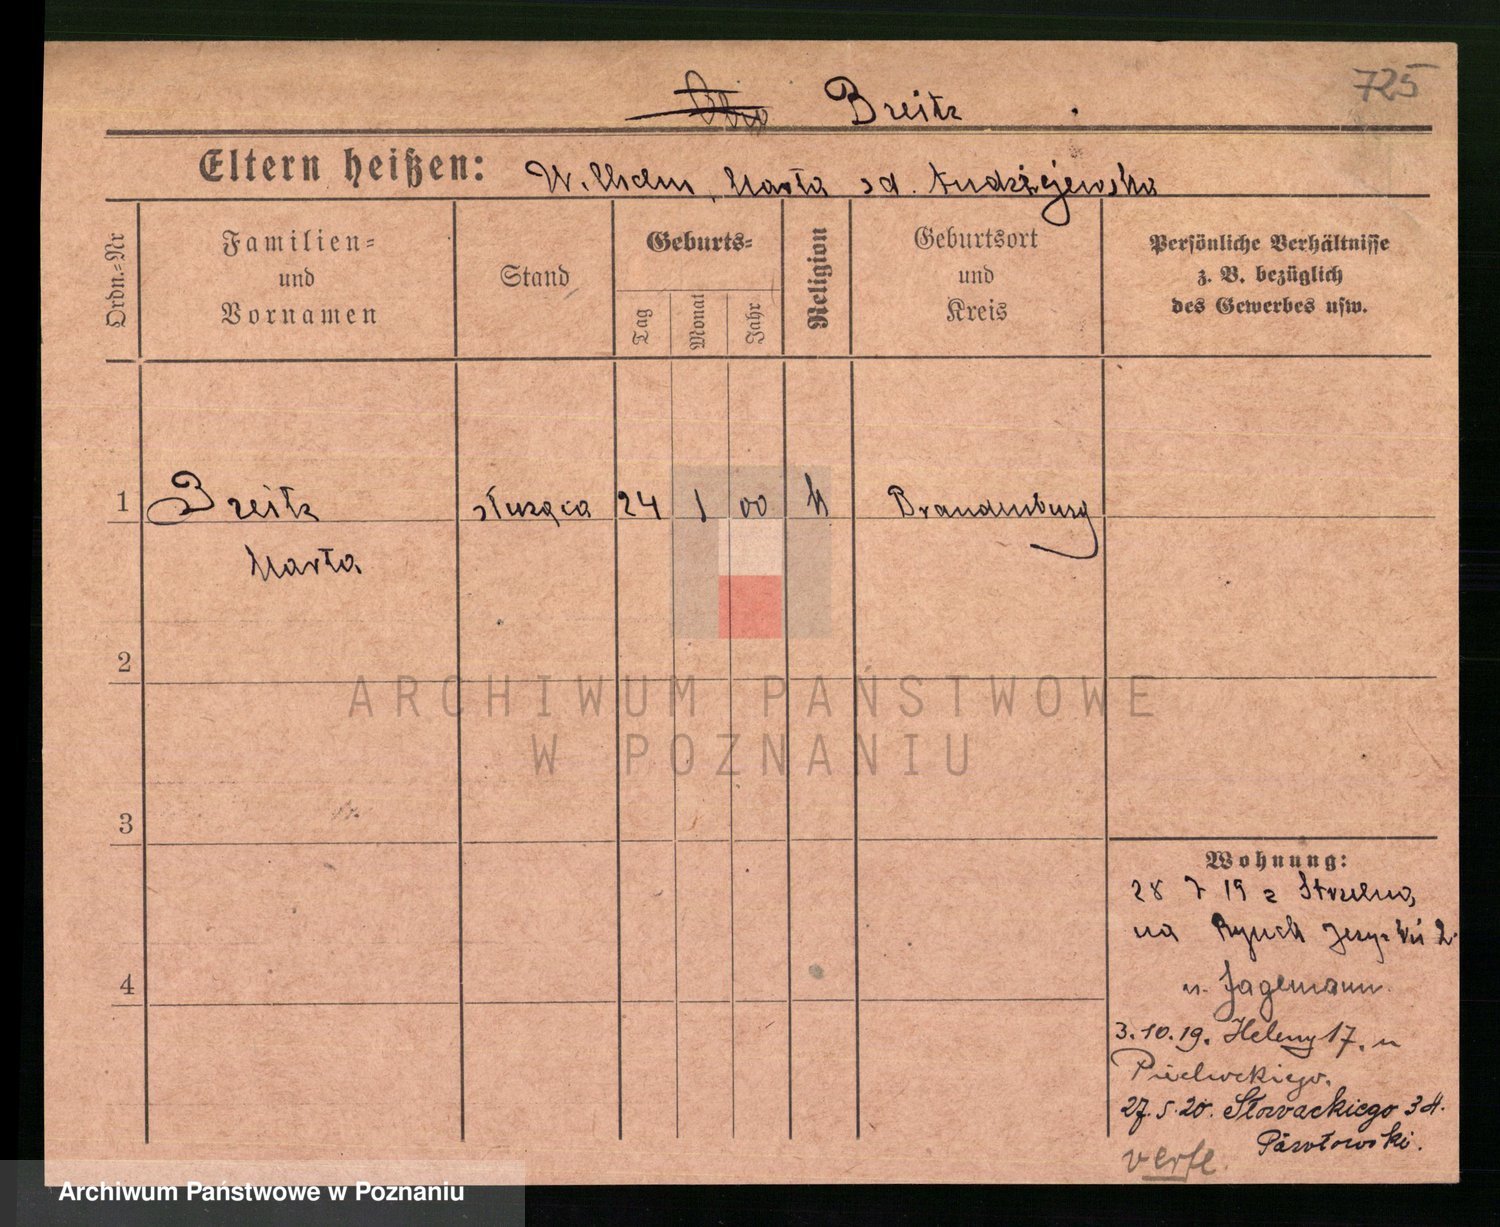 Breitz
725
Eltern heißen: Wilhelm, Marta zd. Andrzejewska
Ordn.-Nr
Familien-
und
Vornamen
Stand
Geburts-
Tag
Monat
Jahr
Religion
Geburtsort
und
Kreis
Persönliche Verhältnisse
z. B. bezüglich
des Gewerbes usw.
1 Breitz służąca 24 1 00 k Brandenburg
Marta
2
ARCHIWUM PAŃSTWOWE
W POZNANIU
3
Wohnung:
28 7 19 z Strzelna,
na Rynek 2.
4
u. Jagemann.
3.10.19. Heleny 17. u
27.5.20. Słowackiego 34.
verte.
Archiwum Państwowe w Poznaniu